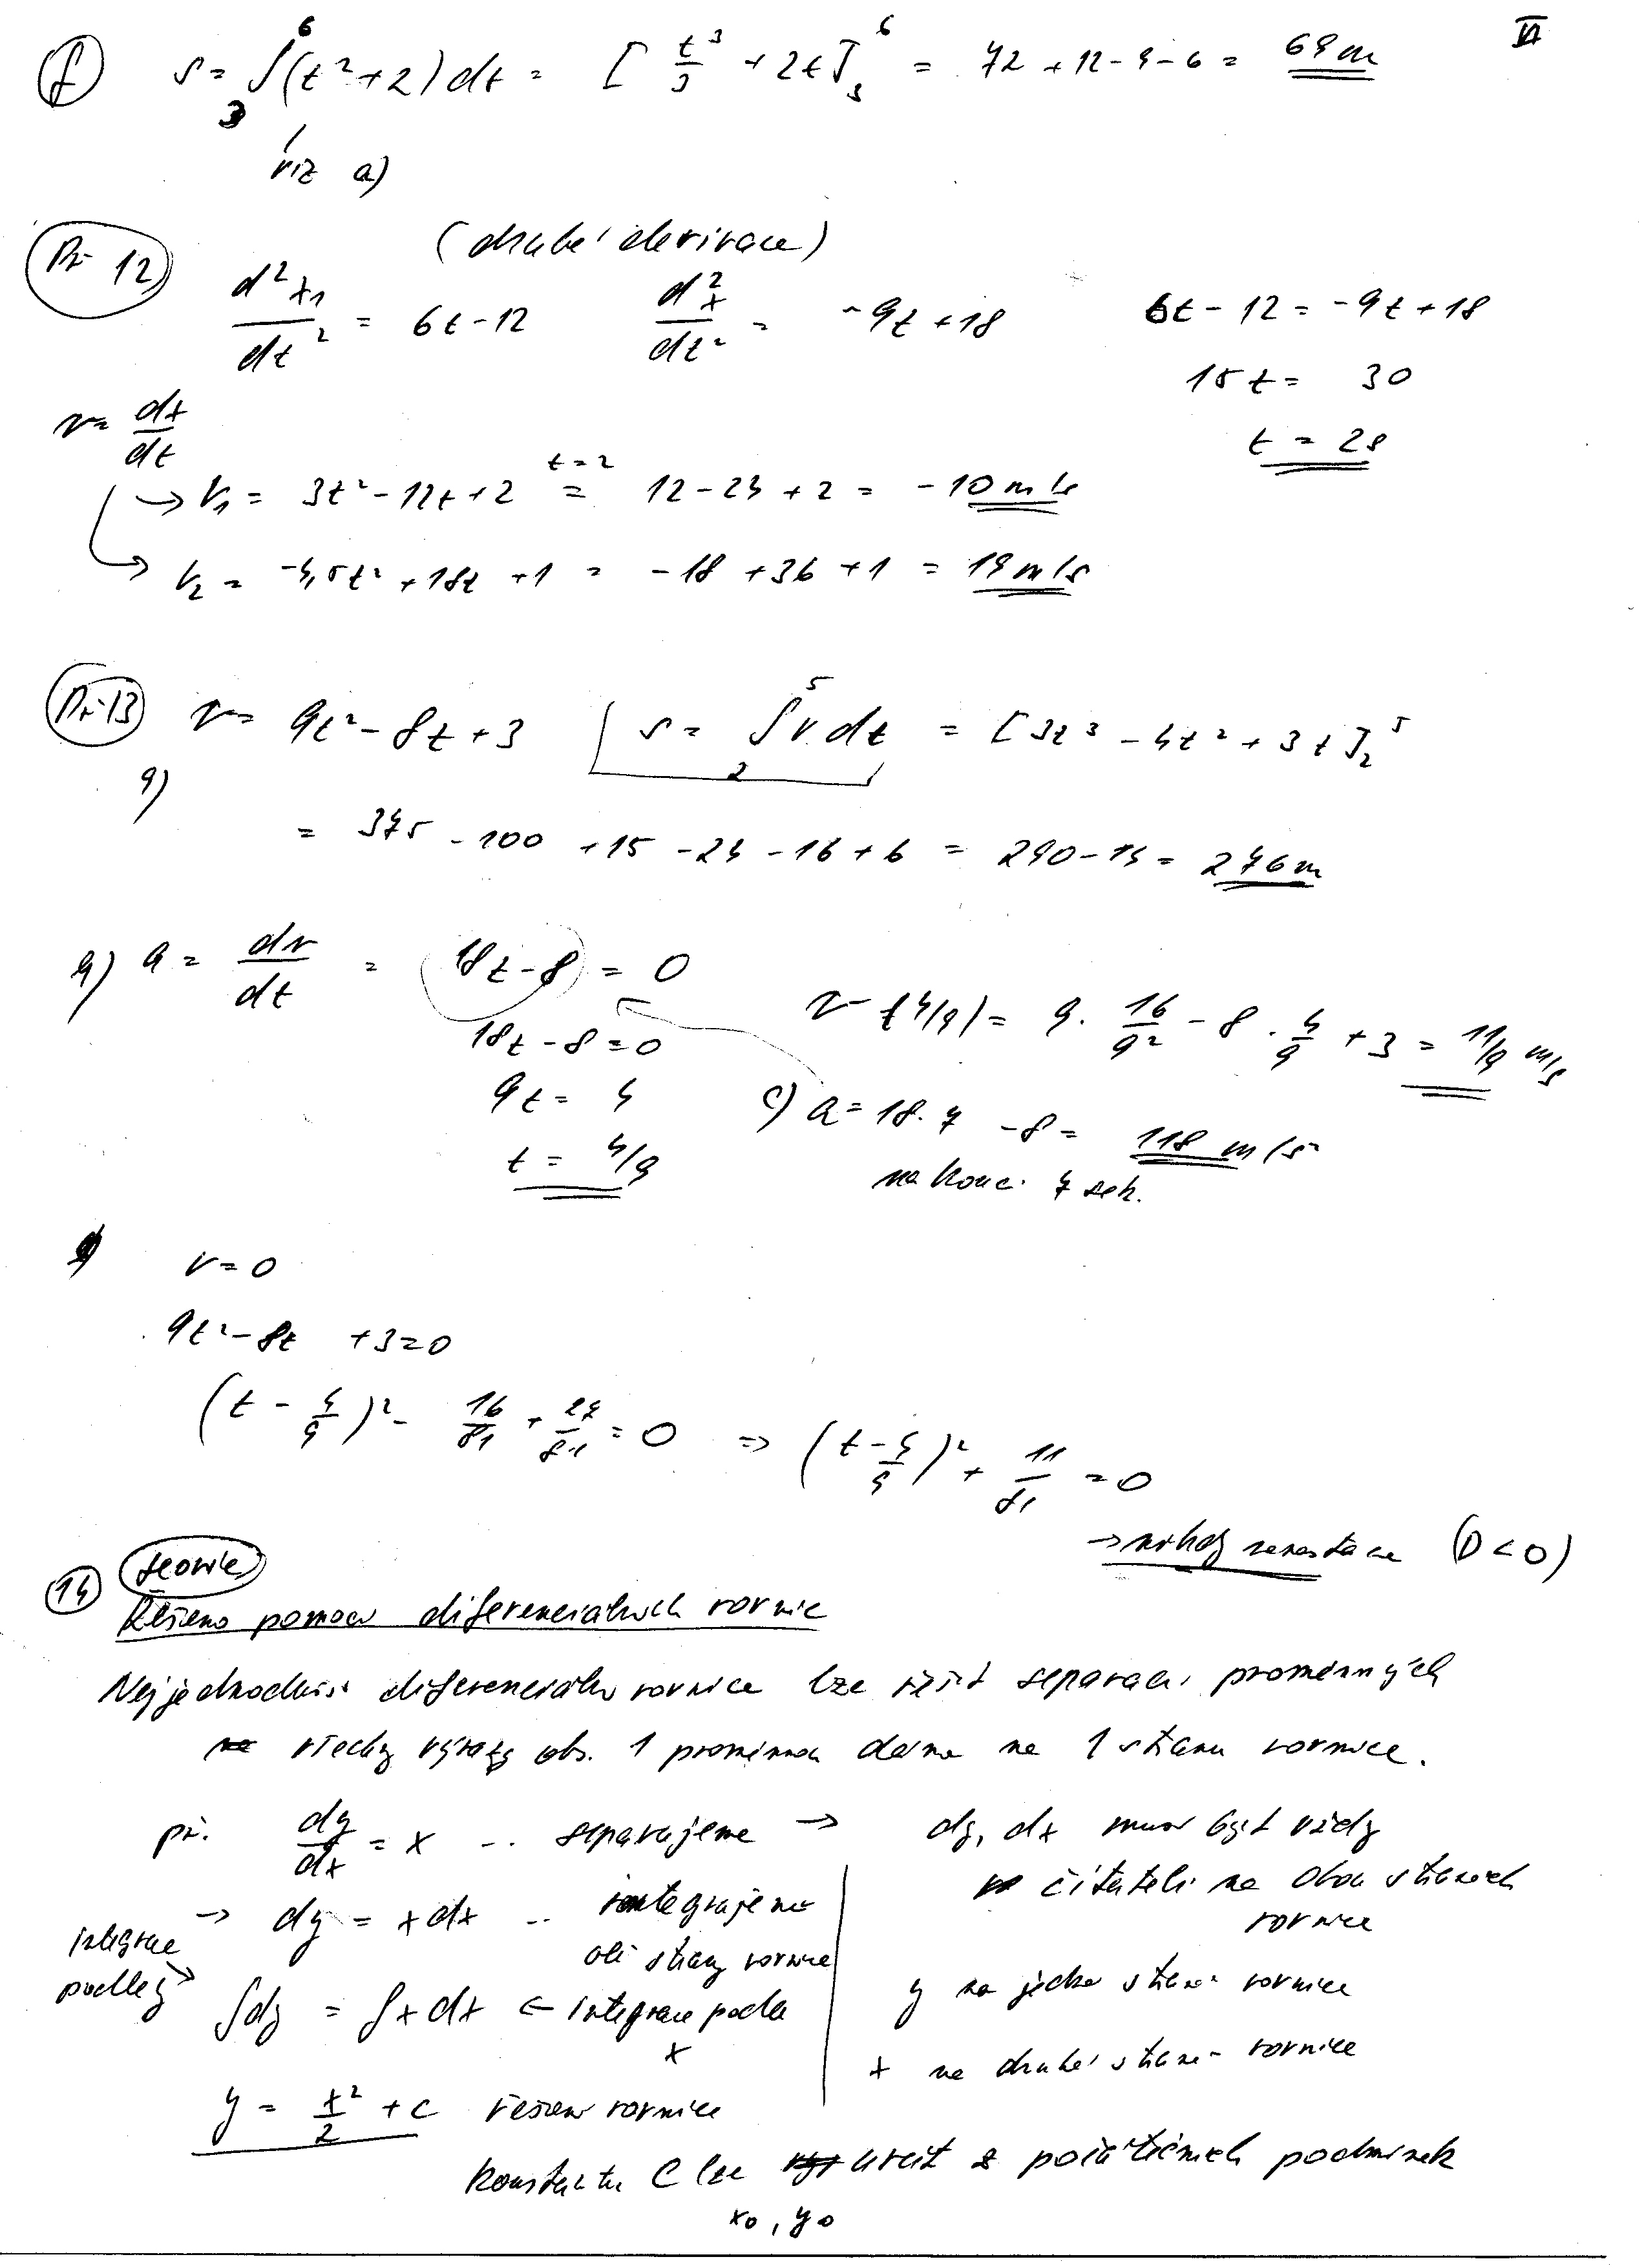 VI
f) s = ∫₃⁶ (t² + 2) dt = [t³/3 + 2t]₃⁶ = 72 + 12 - 9 - 6 = 69 m
viz a)
Př 12 (druhé derivace)
d²x₁/dt² = 6t - 12 d²x/dt² = -9t + 18 6t - 12 = -9t + 18
15t = 30
t = 2s
v = dx/dt
→ v₁ = 3t² - 12t + 2 =(t=2) 12 - 24 + 2 = -10 m/s
→ v₂ = -4,5t² + 18t + 1 = -18 + 36 + 1 = 19 m/s
Př 13 v = 9t² - 8t + 3 s = ∫₂⁵ v dt = [3t³ - 4t² + 3t]₂⁵
a)
= 375 - 100 + 15 - 24 - 16 + 6 = 290 - 14 = 276 m
b) a = dv/dt = 18t - 8 = 0
18t - 8 = 0
v(4/9) = 9 · 16/9² - 8 · 4/9 + 3 = 11/9 m/s
9t = 4
t = 4/9
c) a = 18·7 - 8 = 118 m/s²
na konci 7 sek.
v = 0
9t² - 8t + 3 = 0
(t - 4/9)² - 16/81 + 27/81 = 0 => (t - 4/9)² + 11/81 = 0
→ nikdy nenastane (D < 0)
14 teorie
Řešeno pomocí diferenciálních rovnic
Nejjednodušší diferenciální rovnice lze řešit separací proměnných
všechny výrazy obs. 1 proměnnou dáme na 1 stranu rovnice.
př. dy/dx = x .. separujeme →
→ dy = x dx .. integrujeme
obě strany rovnice
integrace podle y →
∫dy = ∫x dx ← integrace podle
x
y = x²/2 + c řešení rovnice
dy, dx musí být vždy
v čitateli na obou stranách
rovnice
y na jedné straně rovnice
x na druhé straně rovnice
Konstantu C lze určit z počátečních podmínek
x₀, y₀